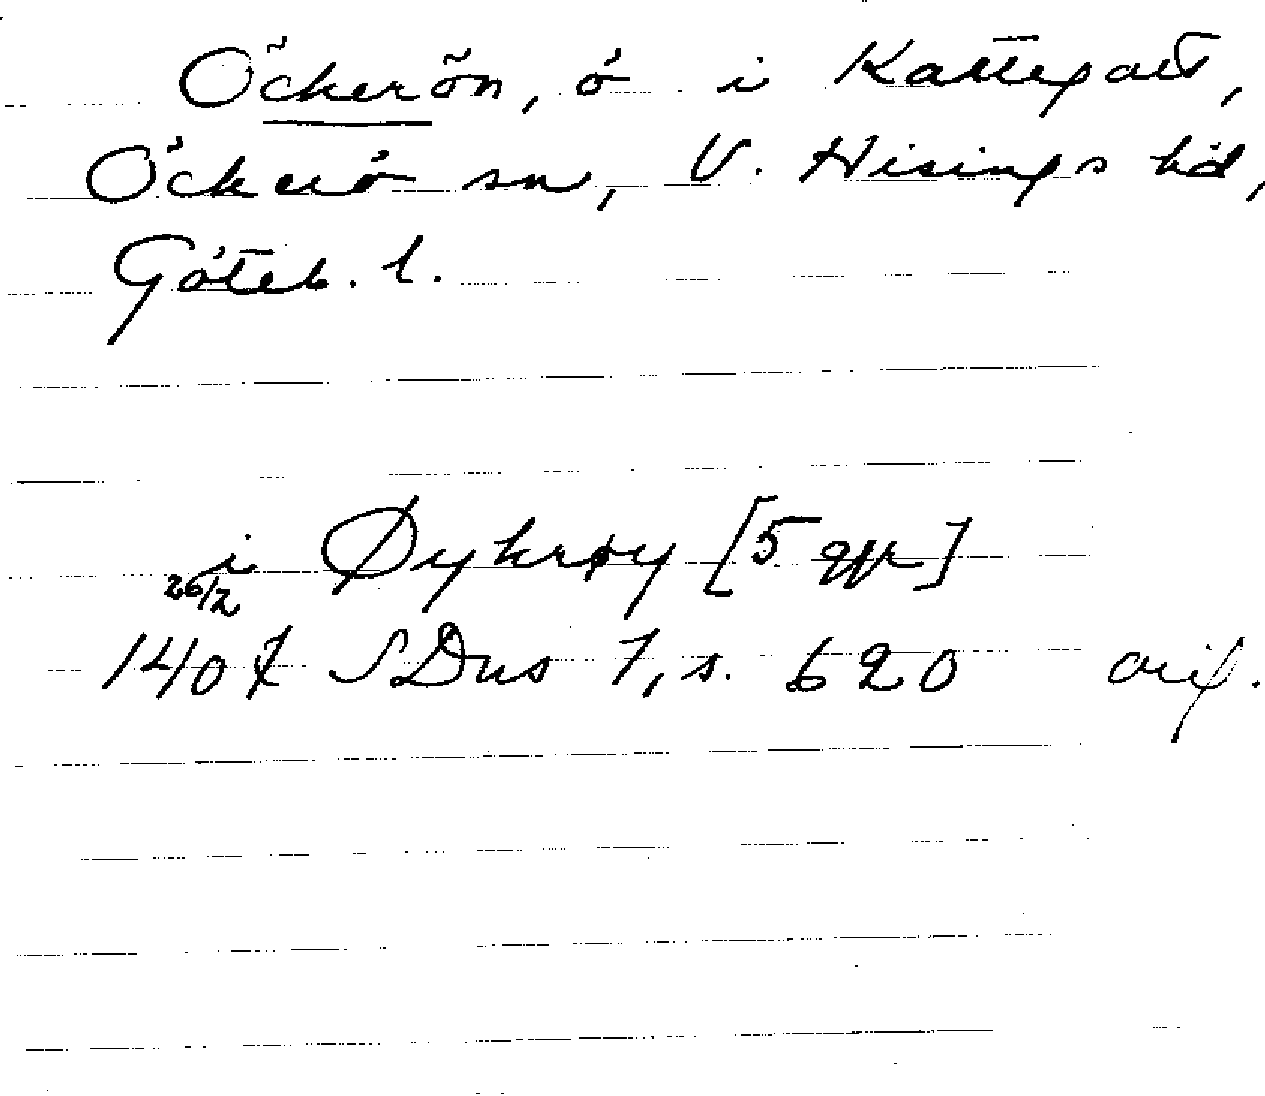 Öckerön, ö i Kattegatt,
Öckerö sn, V. Hisings hd,
Göteb. l.
i Øykrøy [5 ggr]
26/2
1407 SDns 1, s. 620 orig.